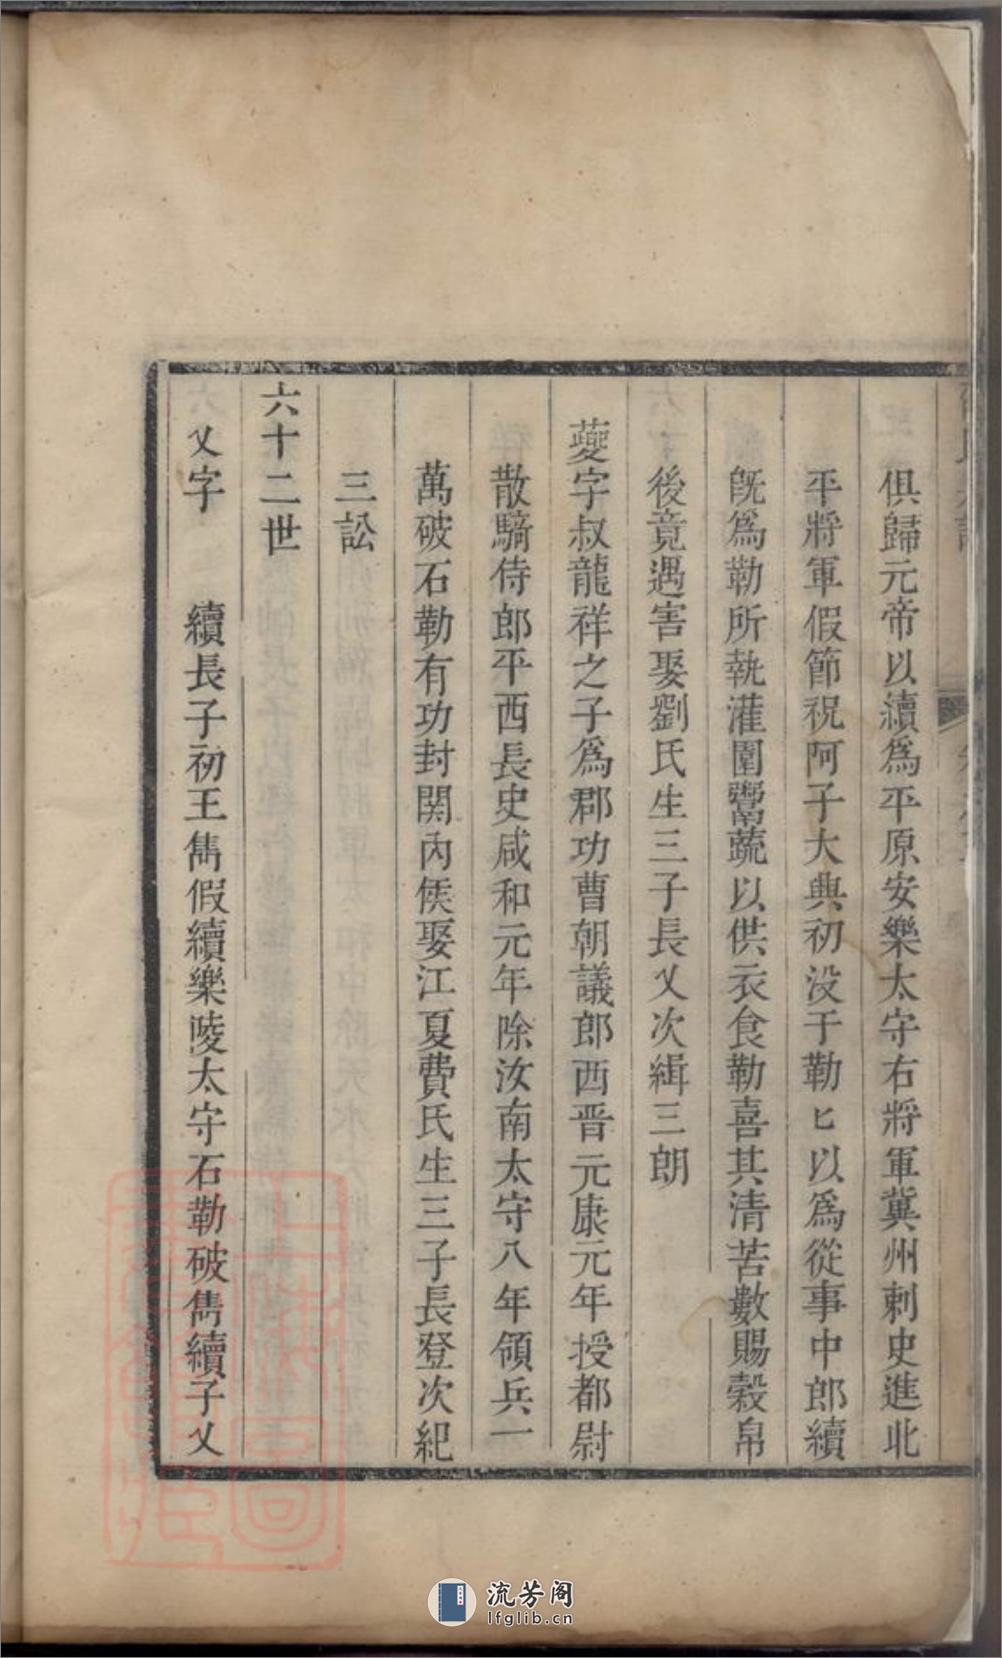 俱歸元帝以續爲平原安樂太守右將軍冀州刺史進北
平將軍假節祝阿子大興初没于勒匕以爲從事中郎續
旣爲勒所執灌園鬻蔬以供衣食勒喜其清苦數賜穀帛
後竟遇害娶劉氏生三子長乂次緝三朗
夔字叔龍祥之子爲郡功曹朝議郎西晋元康元年授都尉
散騎侍郎平西長史咸和元年除汝南太守八年領兵一
萬破石勒有功封関內侯娶江夏費氏生三子長登次紀
三訟
六十二世
乂字 續長子初王雋假續樂陵太守石勒破雋續子乂
流芳阁
lfglib.cn